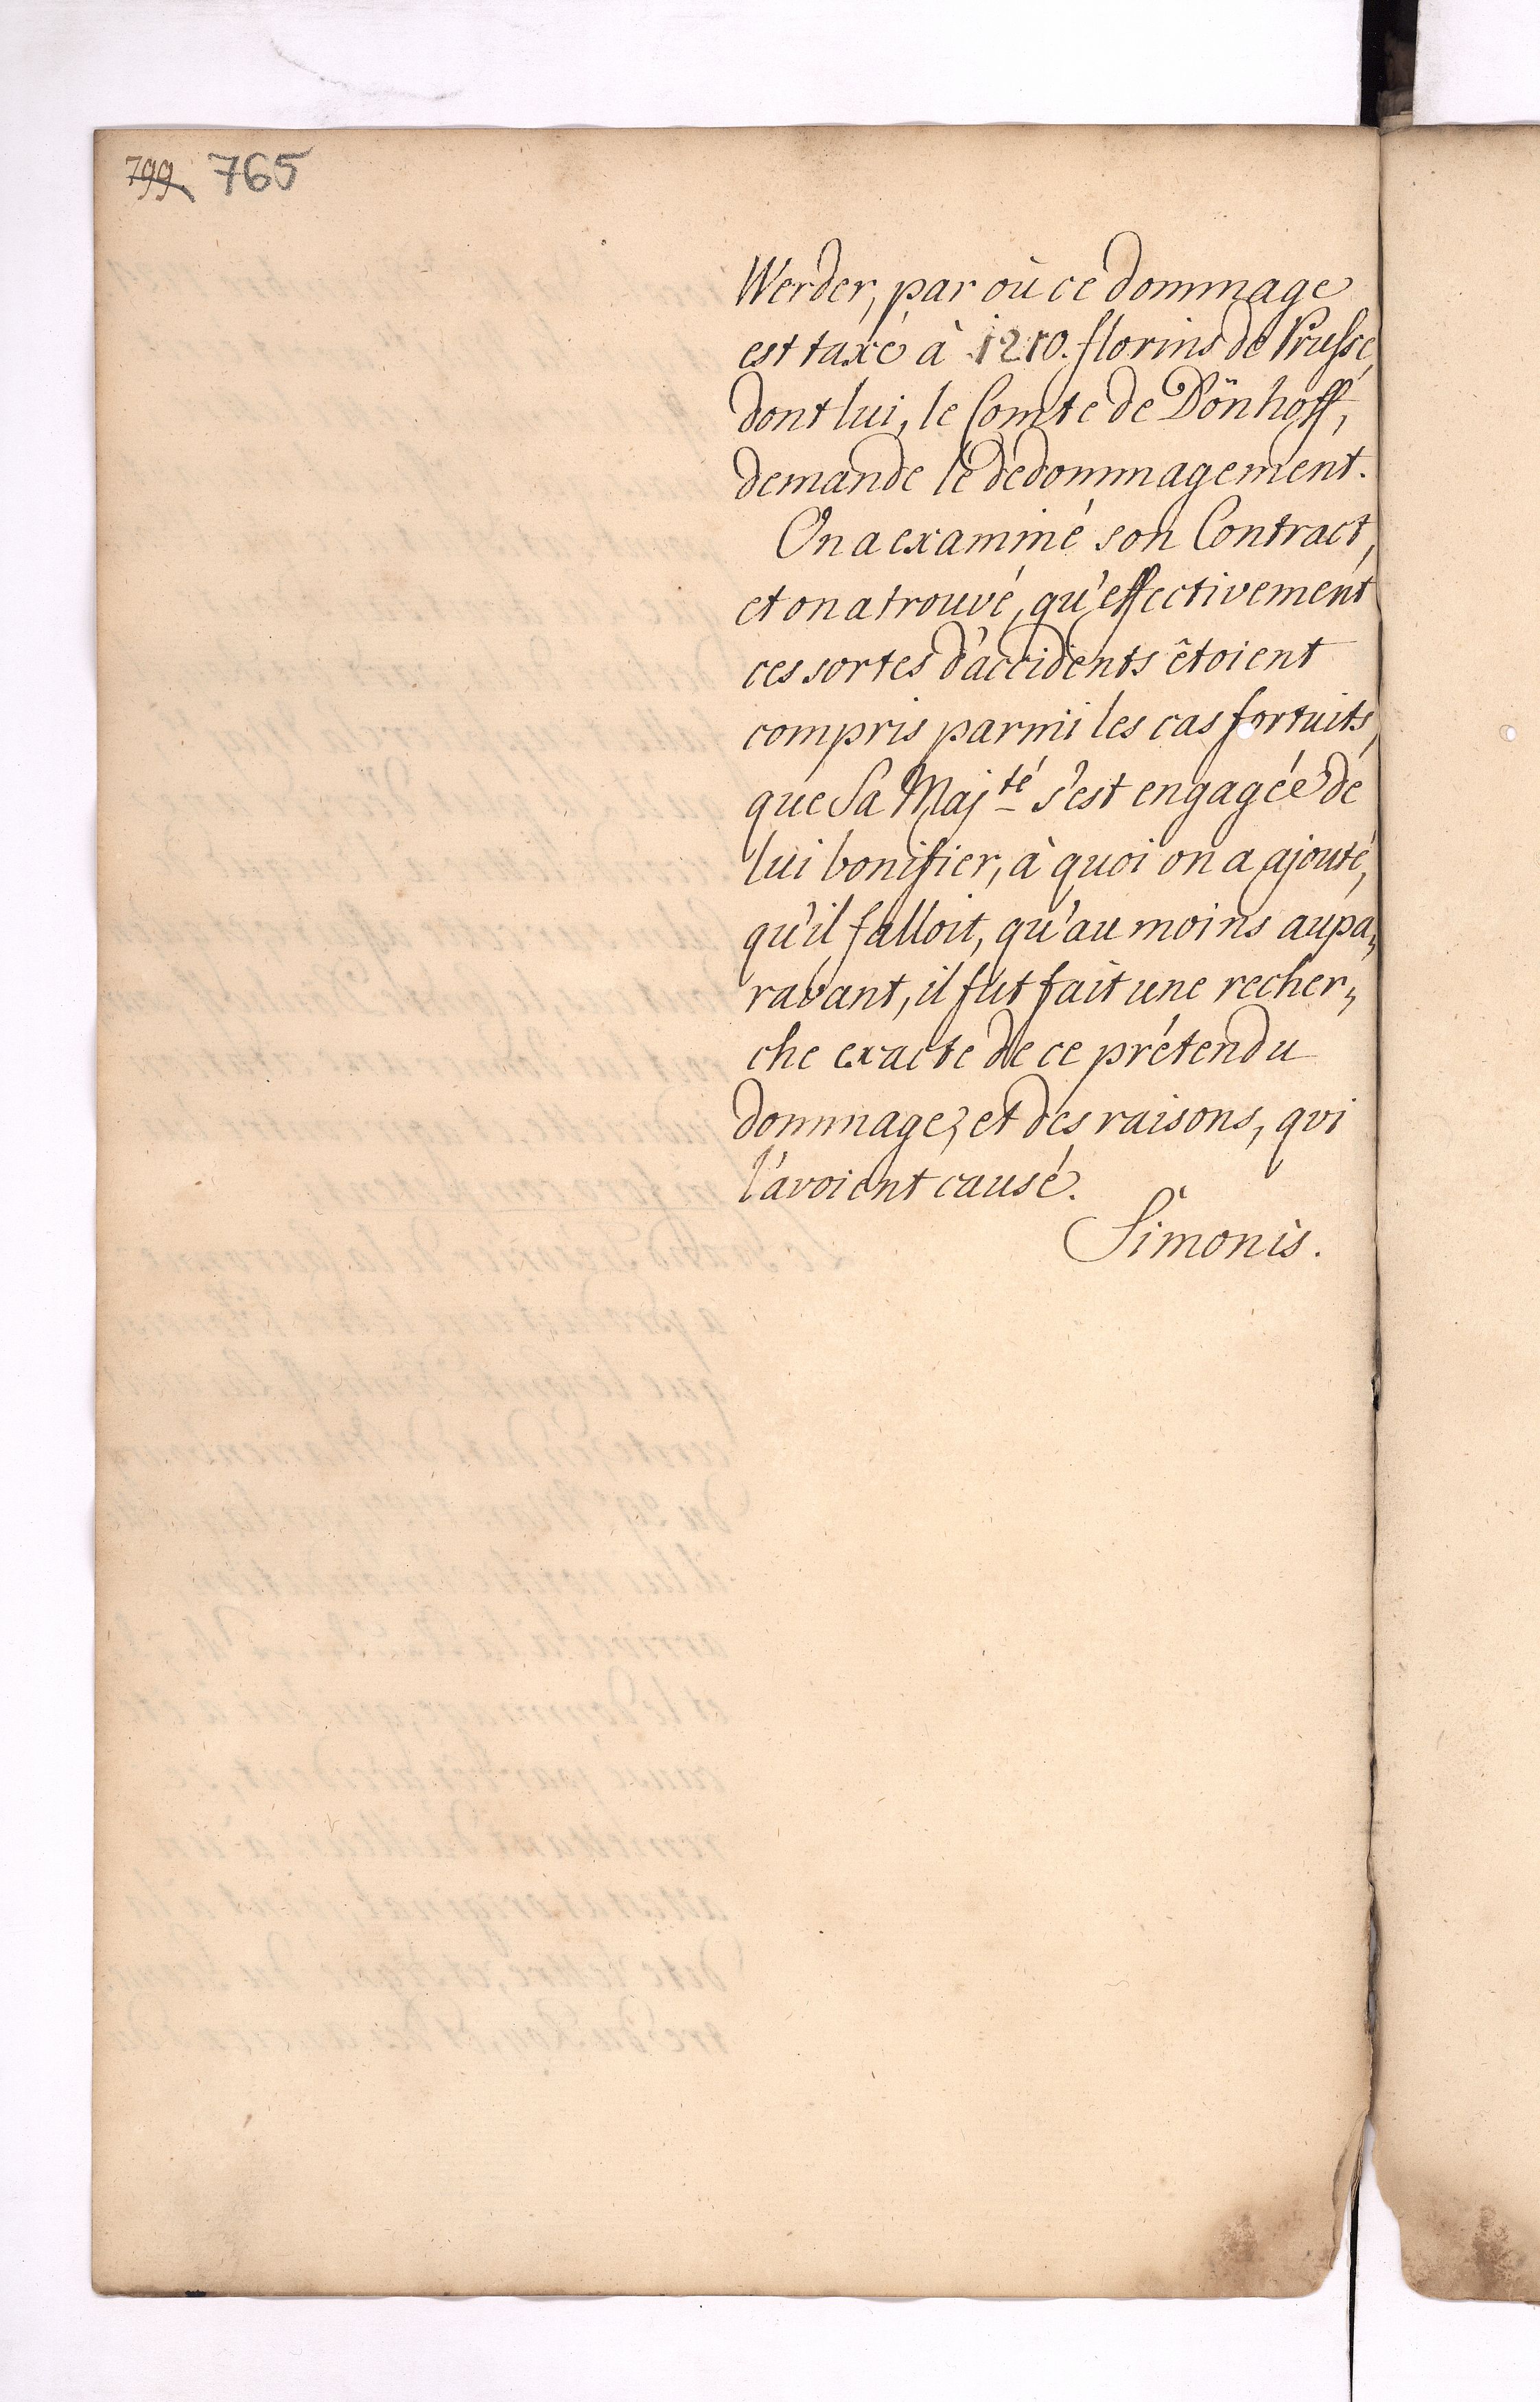 799 765
Werder, par où ce dommage
est taxé à 1210. florins de Prusse,
dont lui, le Comte de Dönhoff,
demande le dedommagement.
On a examiné son Contract,
et on a trouvé, qu'effectivement
ces sortes d'accidents êtoient
compris parmi les cas fortuits,
que Sa Maj^té s'est engagée de
lui bonifier, à quoi on a ajouté,
qu'il falloit, qu'au moins aupa„
ravant, il fut fait une recher„
che exacte de ce prétendu
dommage, et des raisons, qui
l'avoient causé.
Simonis.